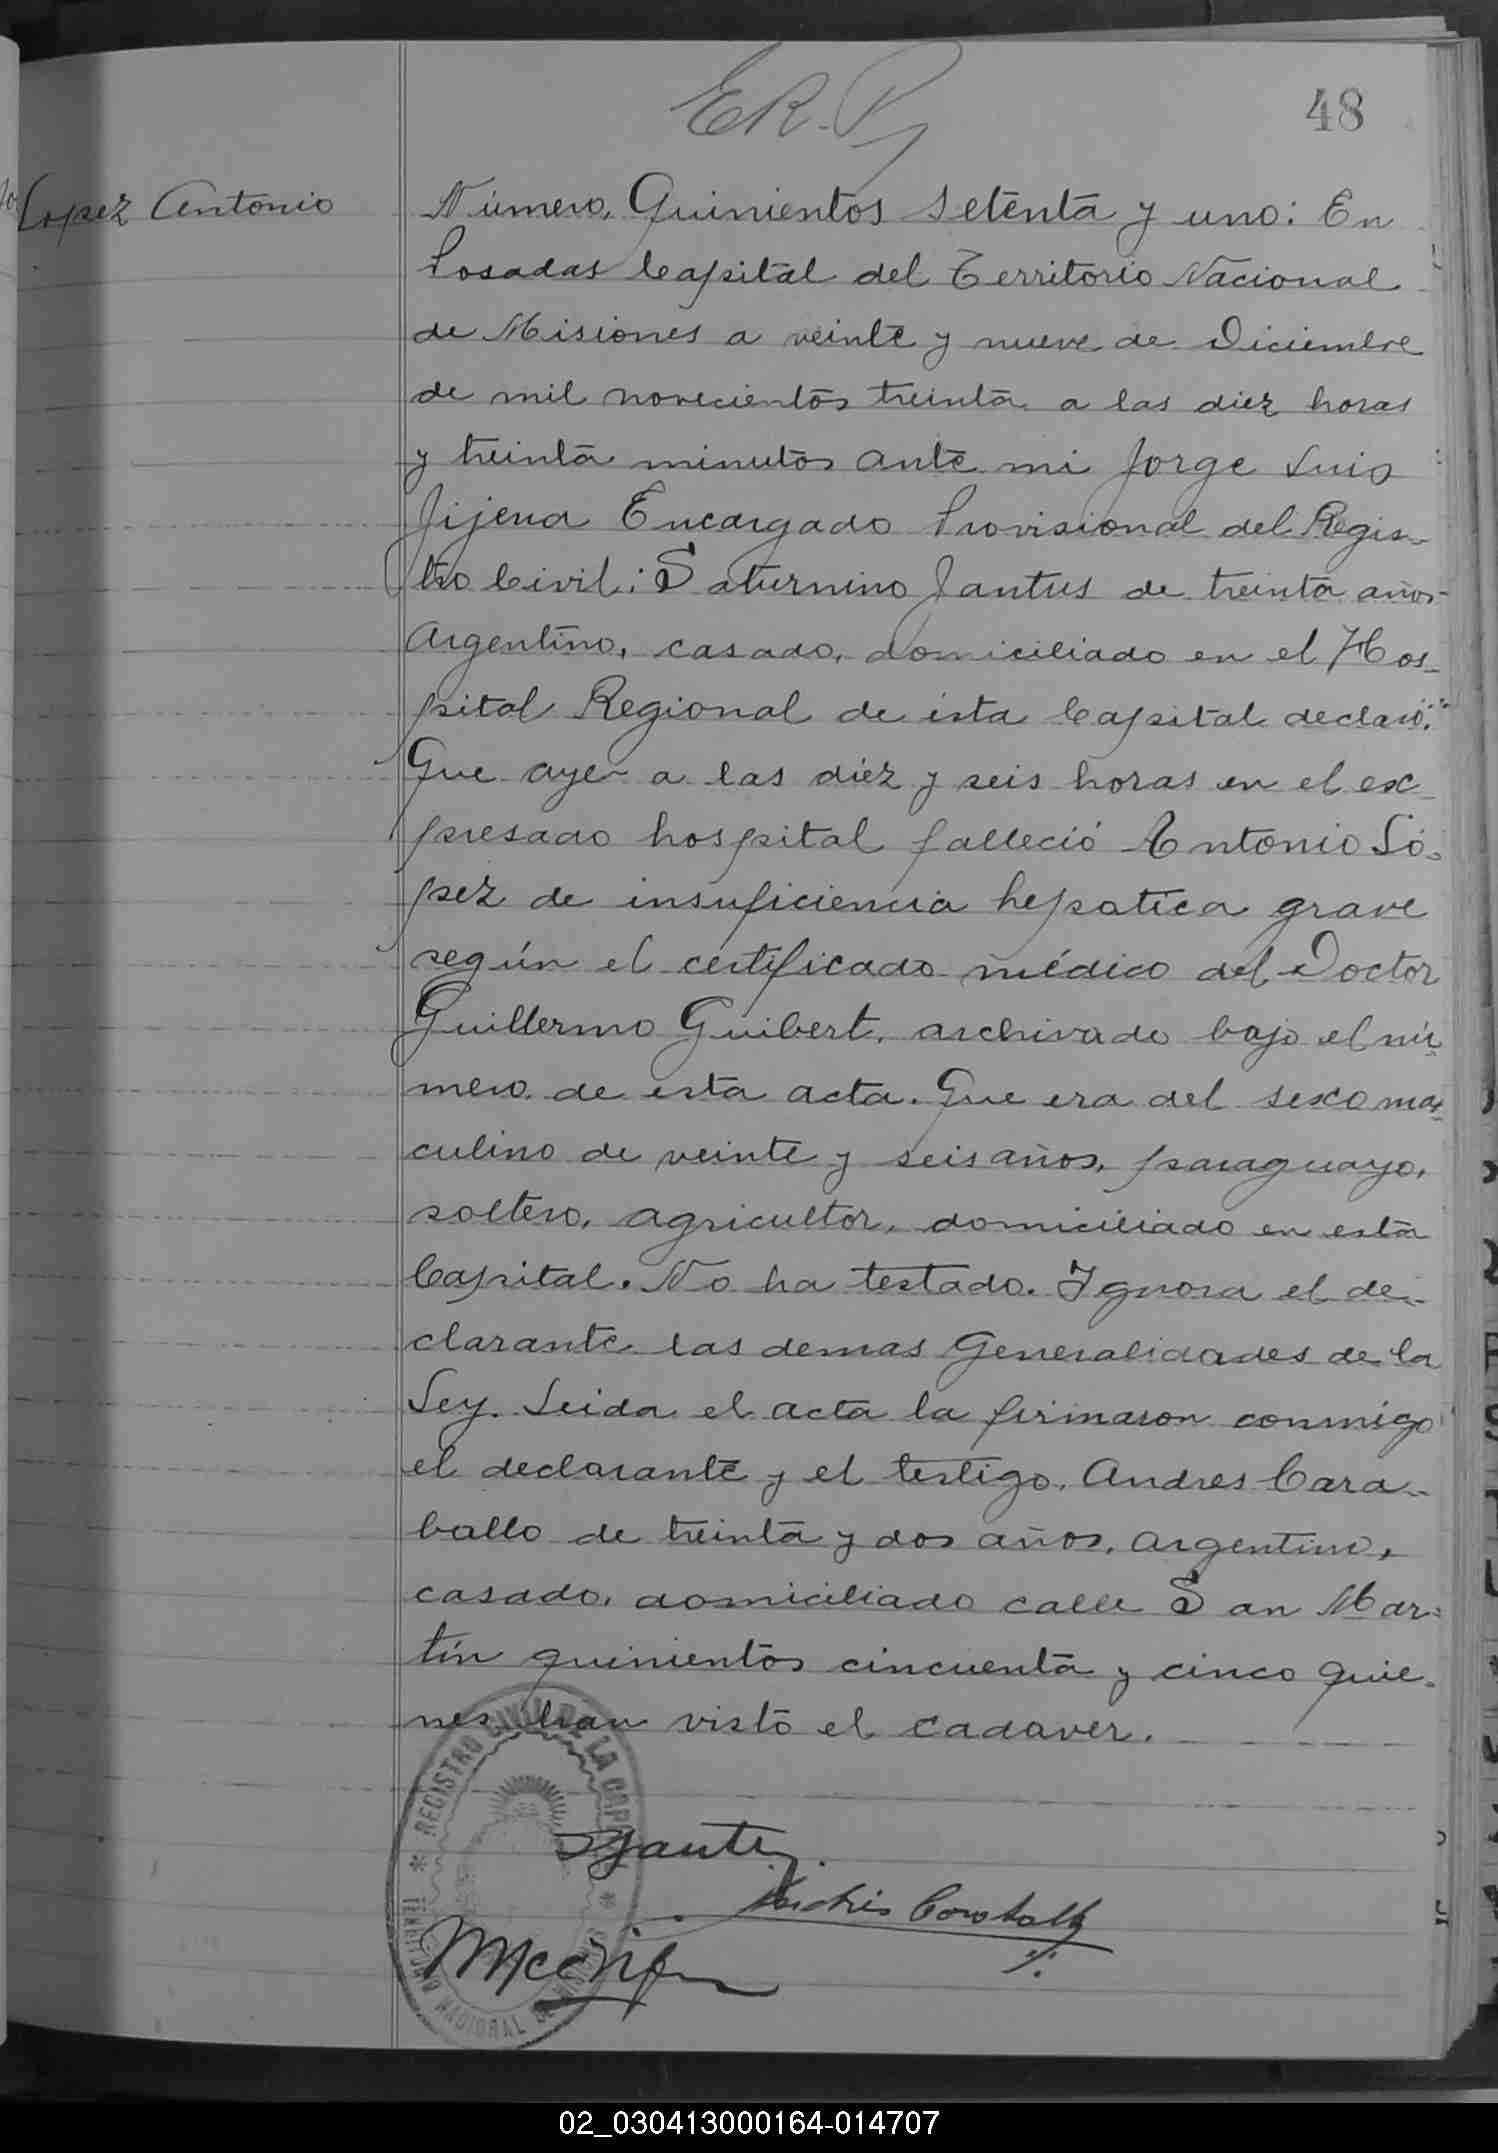 E.R.P.
48
Lopez Antonio
Número, Quinientos setenta y uno: En
Posadas Capital del Territorio Nacional
de Misiones a veinte y nueve de Diciembre
de mil novecientos treinta a las diez horas
y treinta minutos ante mi Jorge Luis
Jijena Encargado Provisional del Regis-
tro Civil: Saturnino Jantus de treinta años
Argentino, casado, domiciliado en el Hos-
pital Regional de ésta Capital declaró:
Que ayer a las diéz y seis horas en el ex-
presado hospital falleció Antonio Ló-
pez de insuficiencia hepatica grave
según el certificado médico del Doctor
Guillermo Guibert, archivado bajo el nú-
mero de esta acta. Que era del sexo mas-
culino de veinte y seis años, paraguayo,
soltero, agricultor, domiciliado en esta
Capital. No ha testado. Ignora el de-
clarante las demas Generalidades de la
Ley. Leida el acta la firmaron conmigo
el declarante y el testigo, Andres Cara-
ballo de treinta y dos años, argentino,
casado, domiciliado calle San Mar-
tín quinientos cincuenta y cinco quie-
nes han visto el cadaver.
REGISTRO CIVIL DE LA CAPITAL
TERRITORIO NACIONAL DE MISIONES
02_030413000164-014707